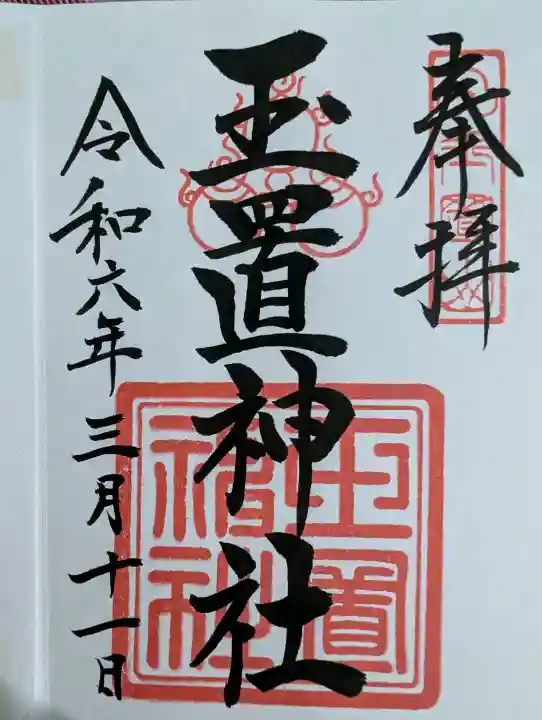 奉拝
玉置神社
令和六年三月十一日
玉置神社